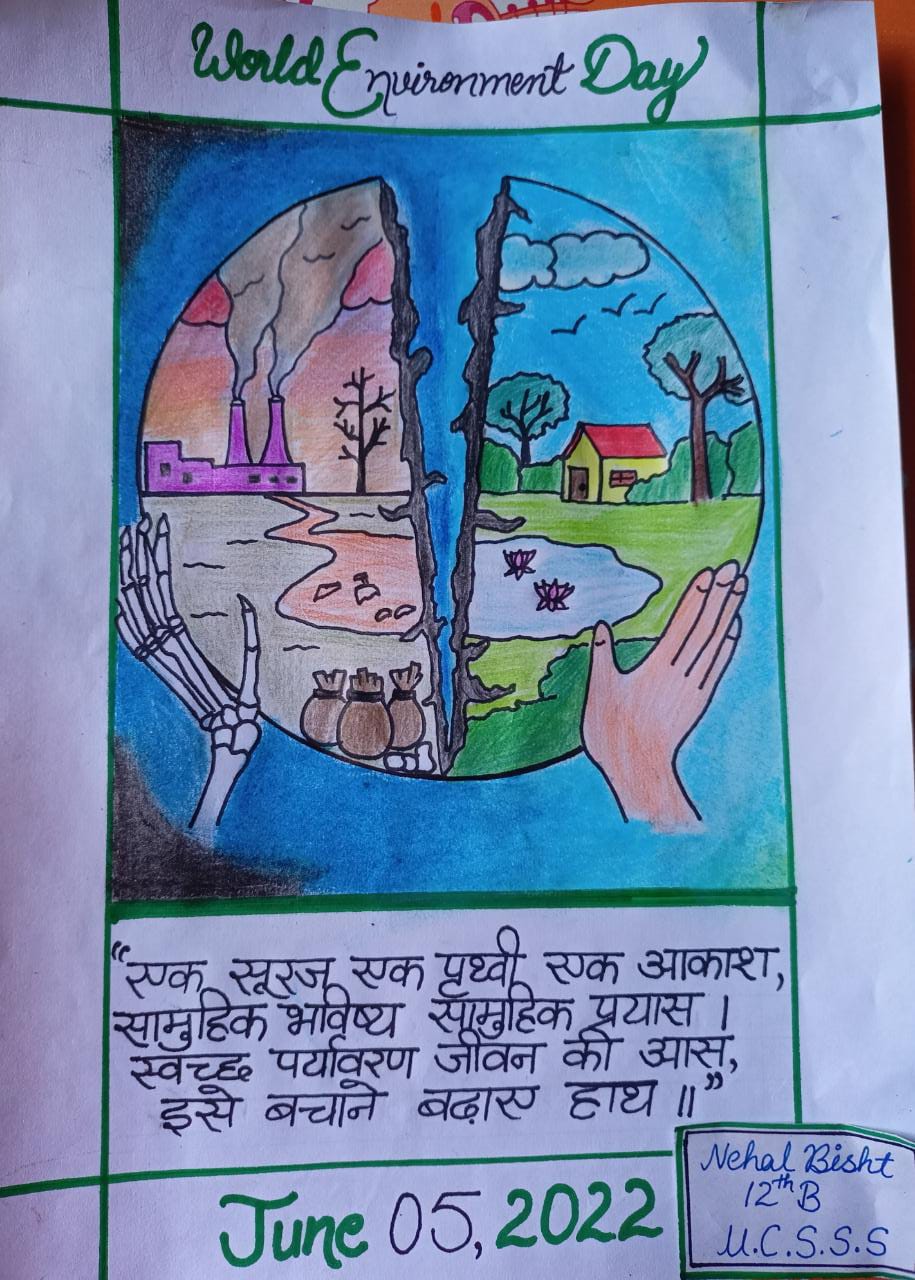 World Environment Day
“एक सूरज एक पृथ्वी एक आकाश,
सामुहिक भविष्य सामुहिक प्रयास ।
स्वच्छ पर्यावरण जीवन की आस,
इसे बचाने बढ़ाए हाथ ॥”
June 05, 2022
Nehal Bisht
12th B
U.C.S.S.S